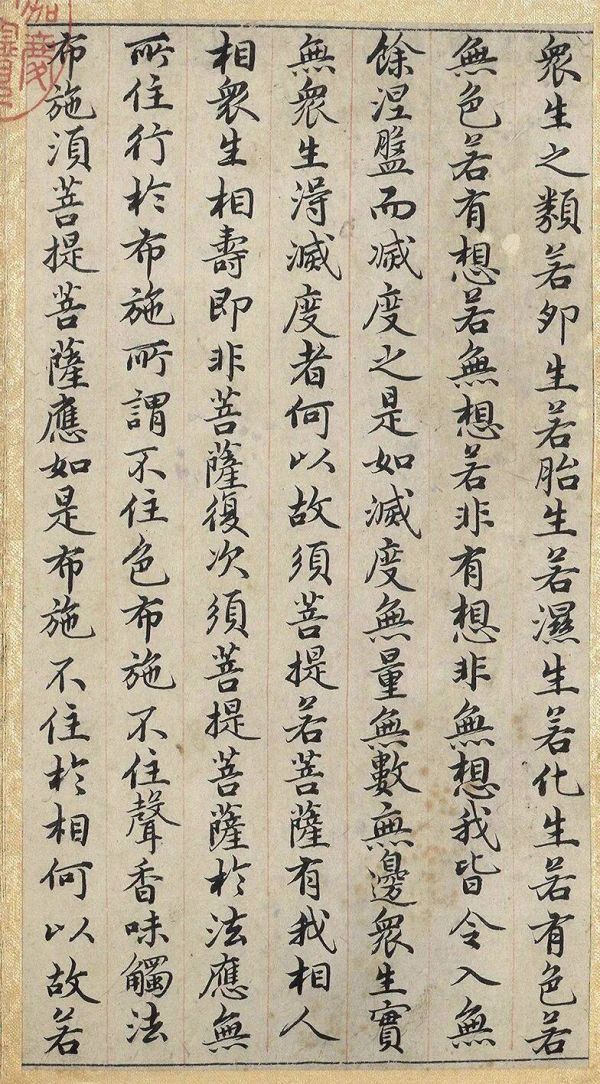 衆生之類若卵生若胎生若濕生若化生若有色若
無色若有想若無想若非有想非無想我皆令入無
餘涅盤而滅度之是如滅度無量無數無邊衆生實
無衆生得滅度者何以故須菩提若菩薩有我相人
相衆生相壽即非菩薩復次須菩提菩薩於法應無
所住行於布施所謂不住色布施不住聲香味觸法
布施須菩提菩薩應如是布施不住於相何以故若